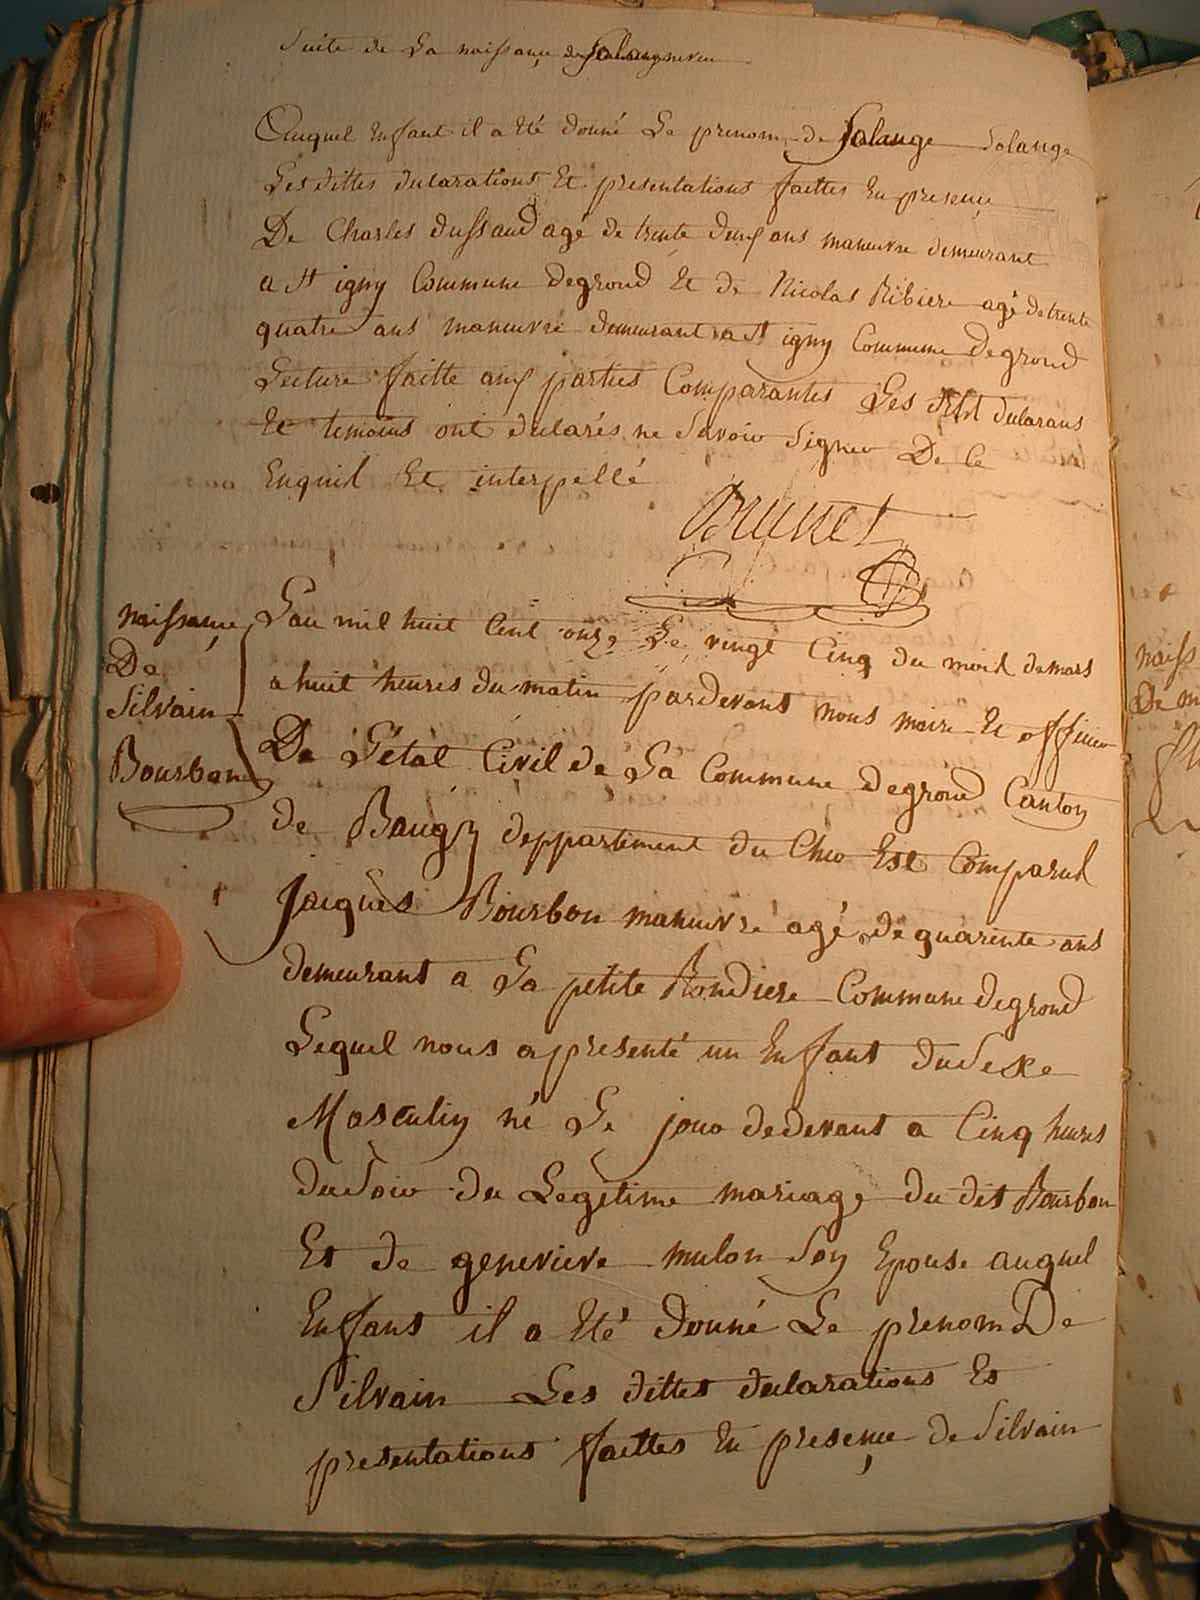 Suite de La naissance de Solange neveu
Auquel Enfant il a Eté donné Le prenom de Solange Solange
Les dittes declarations Et presentations faittes En presence
De Charles dussaud agé de trente deux ans maneuvre demeurant
a St igny Commune degrond Et de Nicolas Ribiere agé detrente
quatre ans maneuvre demeurant a St igny Commune Degrond
Lecture faitte aux parties Comparantes Les dit declarans
Et temoins ont declarés ne Savoir Signer De Ce
Enquil Et interpellé
Brunet
naissance
De
Silvain
Bourbon
Lan mil huit Cent onze Le vingt Cinq du mois demars
a huit heures du matin pardevant nous maire Et officier
De Létat Civil de La Commune degrond Canton
de Baugy deppartement du Cher Est Comparut
Jacques Bourbon maneuvre agé de quarente ans
demeurant a La petite Rondiere Commune degrond
Lequel nous a presenté un Enfant du Sexe
Masculin né Le jour dedevant a Cinq heures
du Soir du Legitime mariage du dit Bourbon
Et de genevieve mulon Son Epouse auquel
Enfant il a Eté donné Le prenom De
Silvain Les dittes declarations Et
presentations faittes En presence de Silvain
naiss
De m